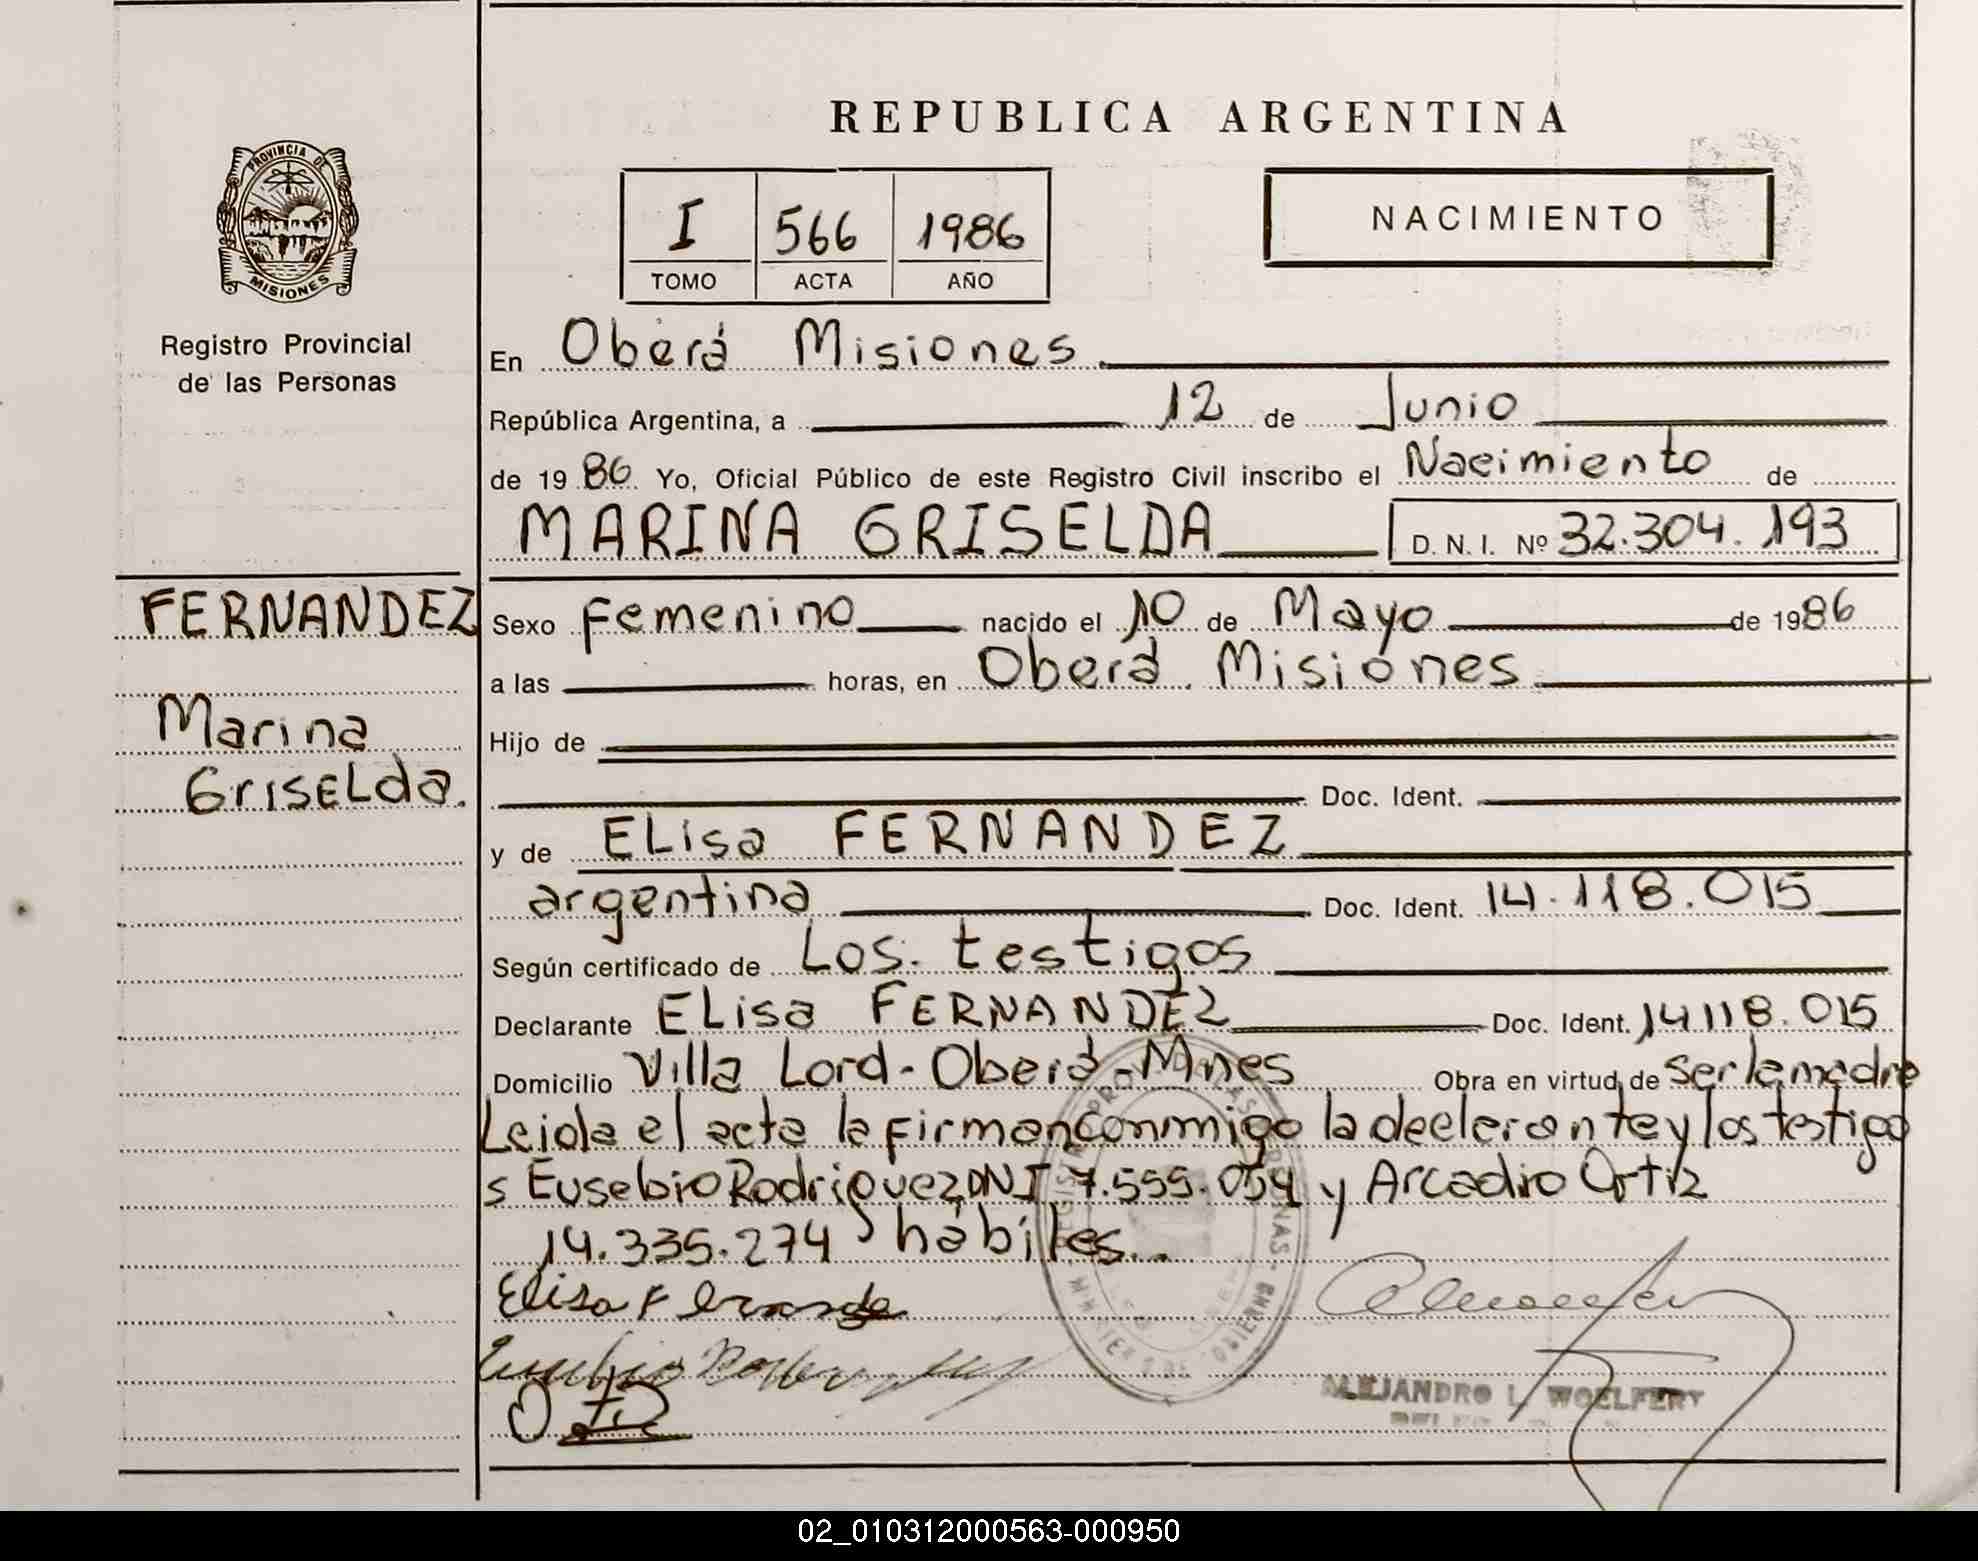 REPUBLICA ARGENTINA
PROVINCIA DE
MISIONES
Registro Provincial
de las Personas
I 566 1986
TOMO ACTA AÑO
NACIMIENTO
En Oberá Misiones
República Argentina, a 12 de Junio
de 1986 Yo, Oficial Público de este Registro Civil inscribo el Nacimiento de
MARINA GRISELDA D. N. I. Nº 32.304.193
FERNANDEZ
Marina
Griselda.
Sexo Femenino nacido el 10 de Mayo de 1986
a las horas, en Oberá Misiones
Hijo de
Doc. Ident.
y de Elisa FERNANDEZ
argentina Doc. Ident. 14.118.015
Según certificado de Los. testigos
Declarante Elisa FERNANDEZ Doc. Ident. 14118.015
Domicilio Villa Lord-Oberá-Mnes Obra en virtud de ser la madre
Leida el acta la firman conmigo la declarante y los testigo
s Eusebio Rodriguez DNI 7.555.054 y Arcadio Ortiz
14.335.274 hábiles...
Elisa Fernandez
Eusebio
ALEJANDRO L. WOELFERT
02_010312000563-000950